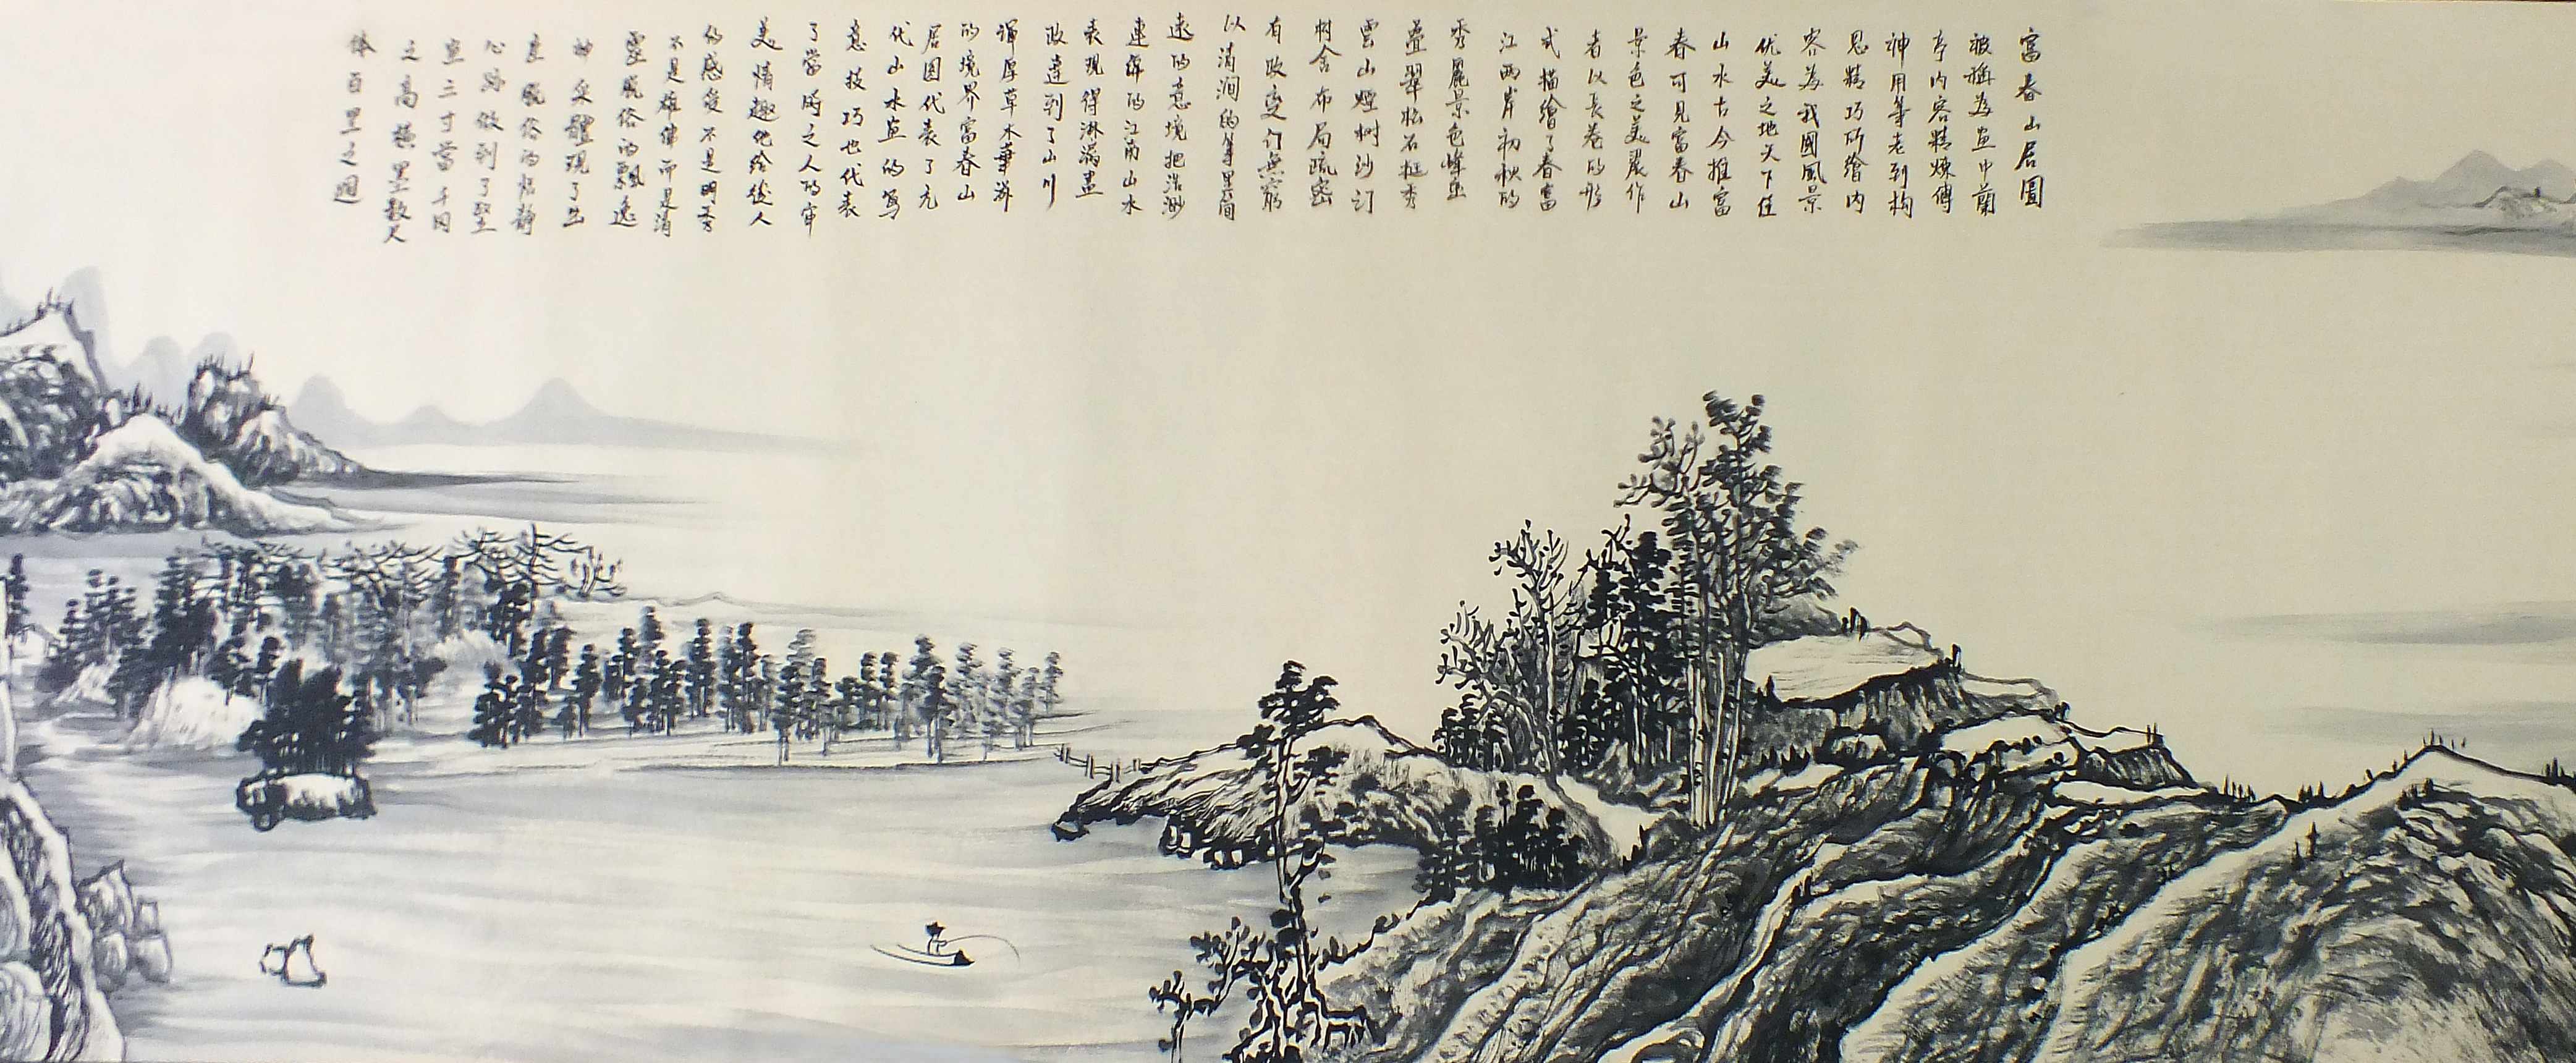 富春山居圖
被稱為畫中蘭
亭内容精煉傳
神用筆老到构
思精巧所繪内
容為我國風景
优美之地天下佳
山水古今推富
春可見富春山
景色之美麗作
者以長卷的形
式描繪了春富
江两岸初秋的
秀麗景色峰巒
疊翠松石挺秀
雲山煙树沙汀
村舍布局疏密
有致变 無窮
以清润的筆墨简
遠的意境把浩渺
連綿的江南山水
表現得淋漓盡
致達到了山川
渾厚草木華滋
的境界富春山
居图代表了元
代山水画的写
意技巧也代表
了當時之人的审
美情趣他给後人
的感受不是明秀
不是雄偉而是清
靈脱俗的飄逸
神采體現了出
塵脱俗的恬靜
心跡做到了堅
画三寸當千仞
之高橫墨數尺
体百里之迥